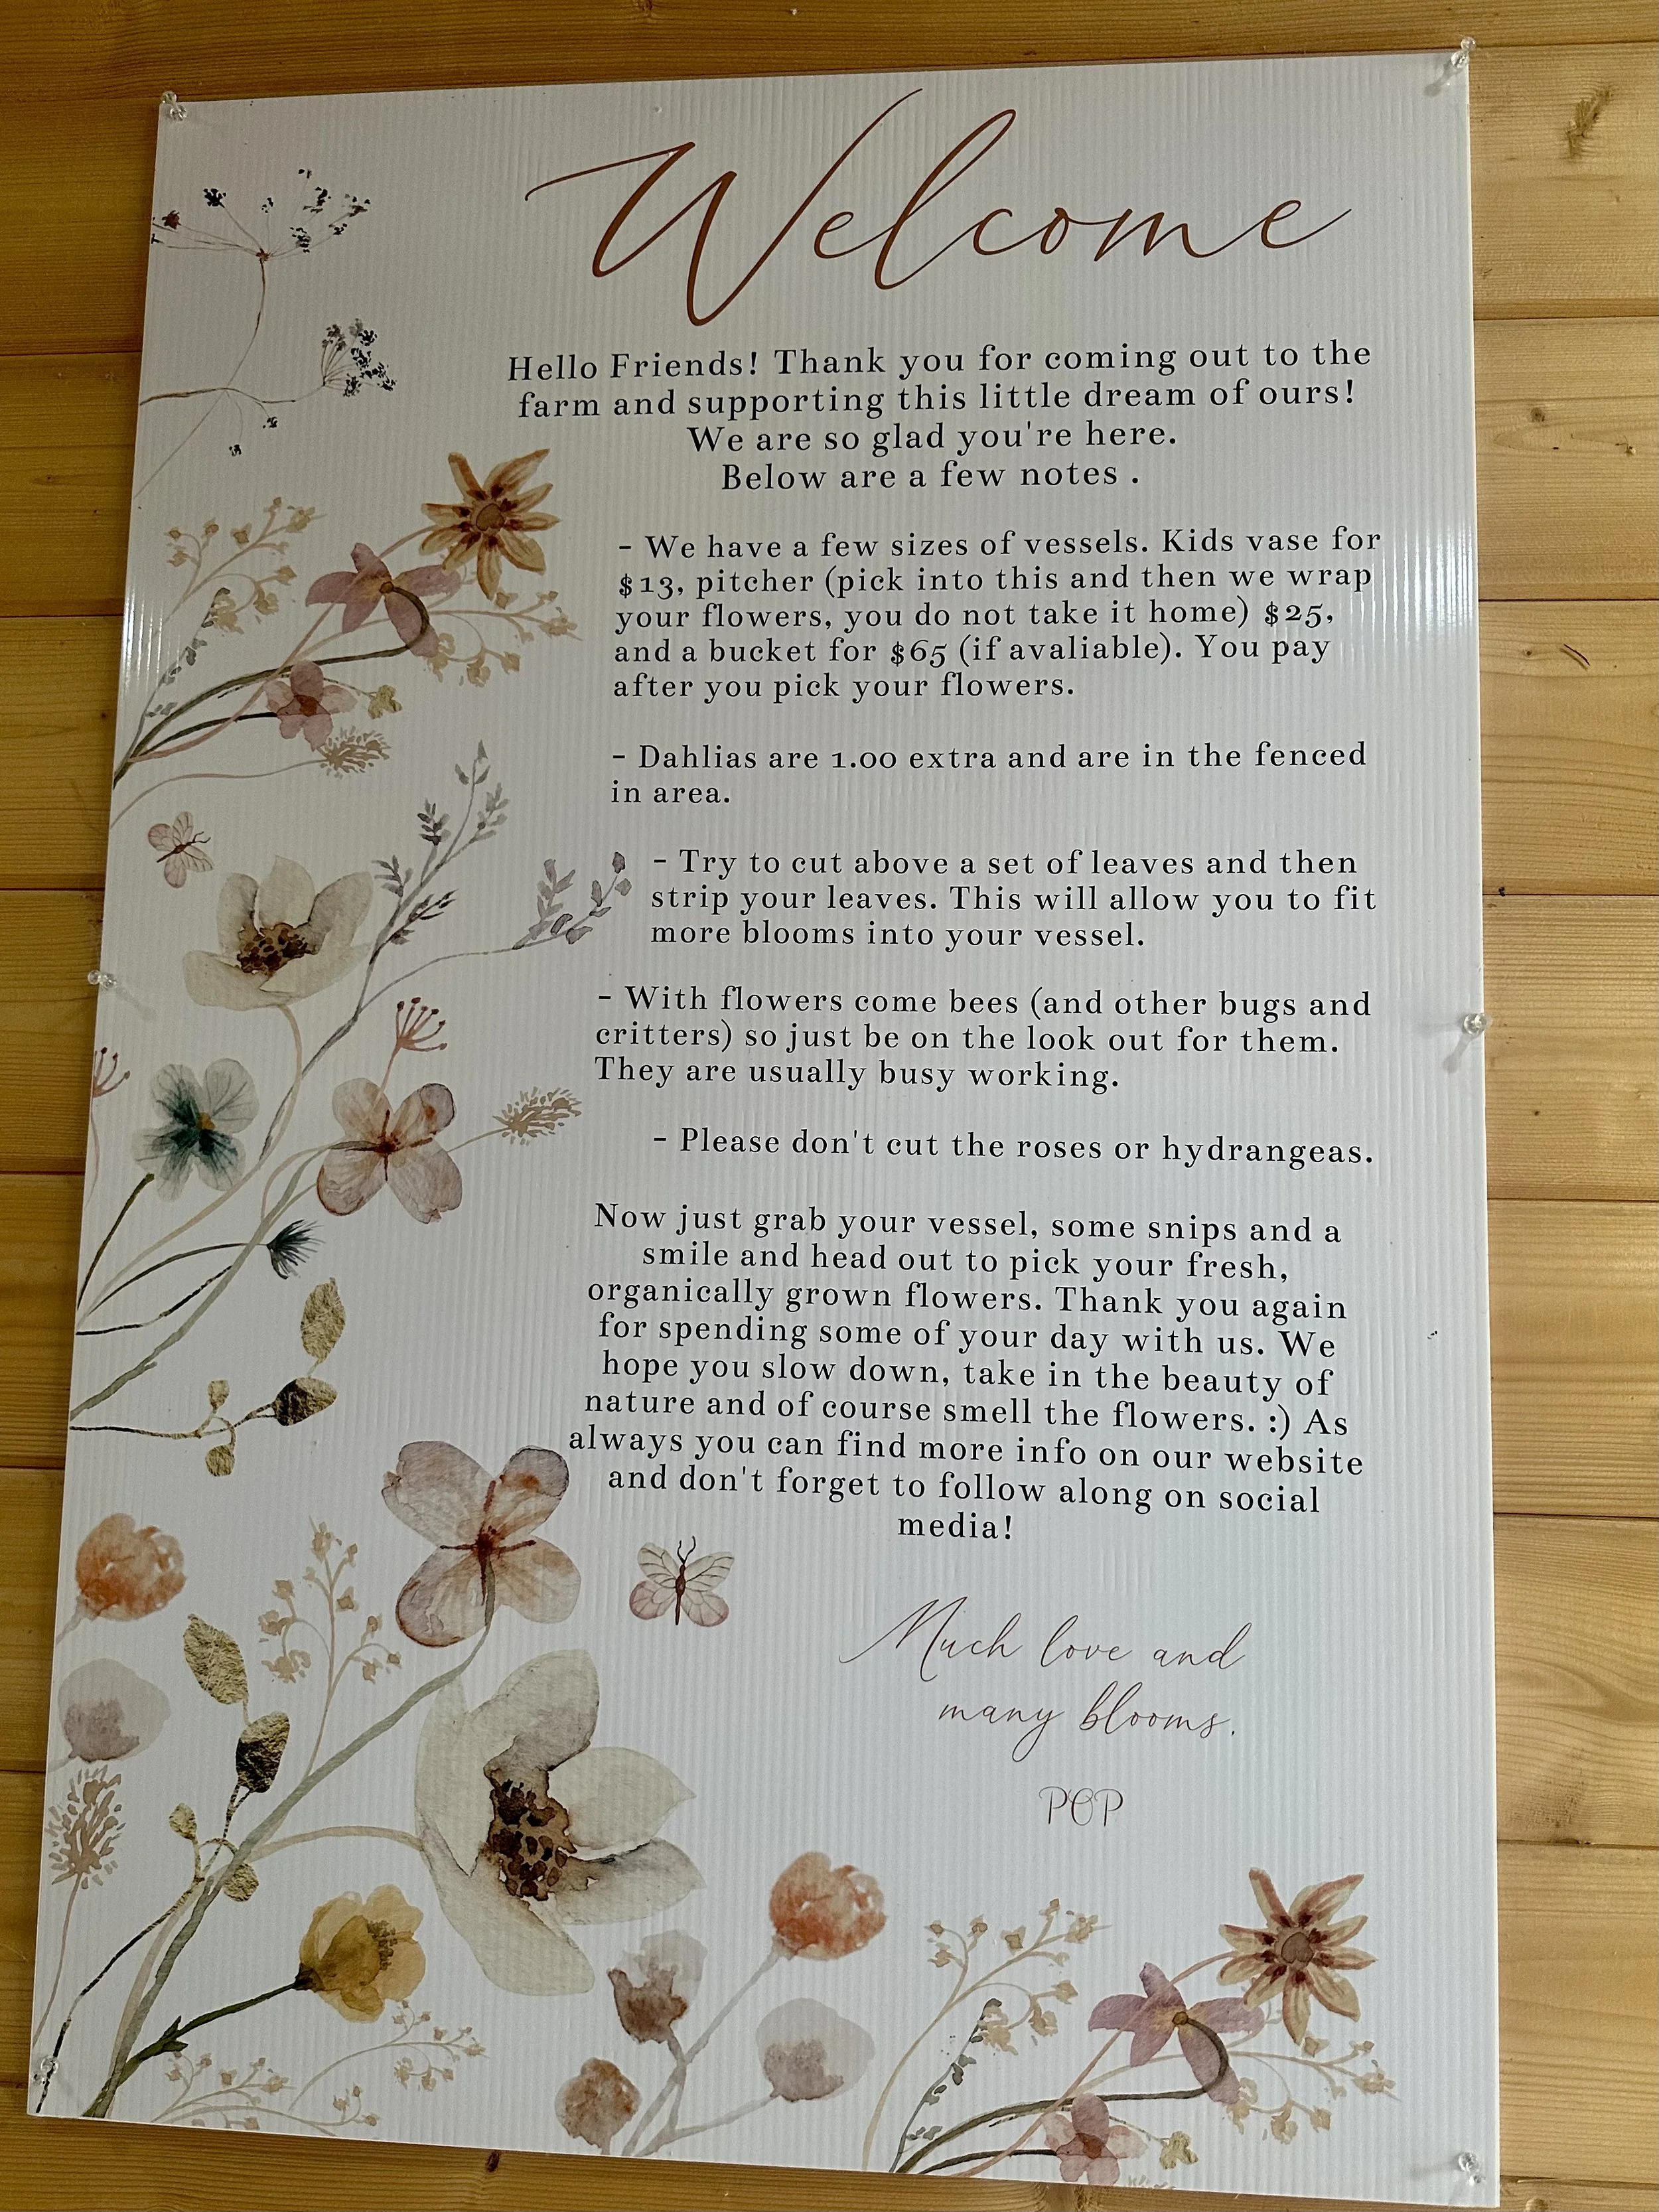 Welcome
Hello Friends! Thank you for coming out to the
farm and supporting this little dream of ours!
We are so glad you're here.
Below are a few notes .
- We have a few sizes of vessels. Kids vase for
$13, pitcher (pick into this and then we wrap
your flowers, you do not take it home) $25,
and a bucket for $65 (if avaliable). You pay
after you pick your flowers.
- Dahlias are 1.00 extra and are in the fenced
in area.
- Try to cut above a set of leaves and then
strip your leaves. This will allow you to fit
more blooms into your vessel.
- With flowers come bees (and other bugs and
critters) so just be on the look out for them.
They are usually busy working.
- Please don't cut the roses or hydrangeas.
Now just grab your vessel, some snips and a
smile and head out to pick your fresh,
organically grown flowers. Thank you again
for spending some of your day with us. We
hope you slow down, take in the beauty of
nature and of course smell the flowers. :) As
always you can find more info on our website
and don't forget to follow along on social
media!
Much love and
many blooms.
POP